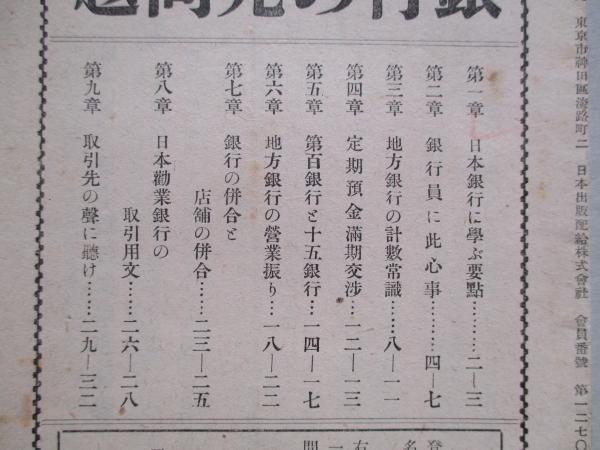 東京市神田區淡路町二 日本出版配給株式會社 會員番號 第一二七〇
銀行の先問題
第一章 日本銀行に學ぶ要點………二―三
第二章 銀行員に此心事………四―七
第三章 地方銀行の計數常識……八―一一
第四章 定期預金滿期交涉…一二―一三
第五章 第百銀行と十五銀行…一四―一七
第六章 地方銀行の營業振り…一八―二二
第七章 銀行の併合と
店舖の併合……二三―二五
第八章 日本勸業銀行の
取引用文……二六―二八
第九章 取引先の聲に聽け……二九―三二